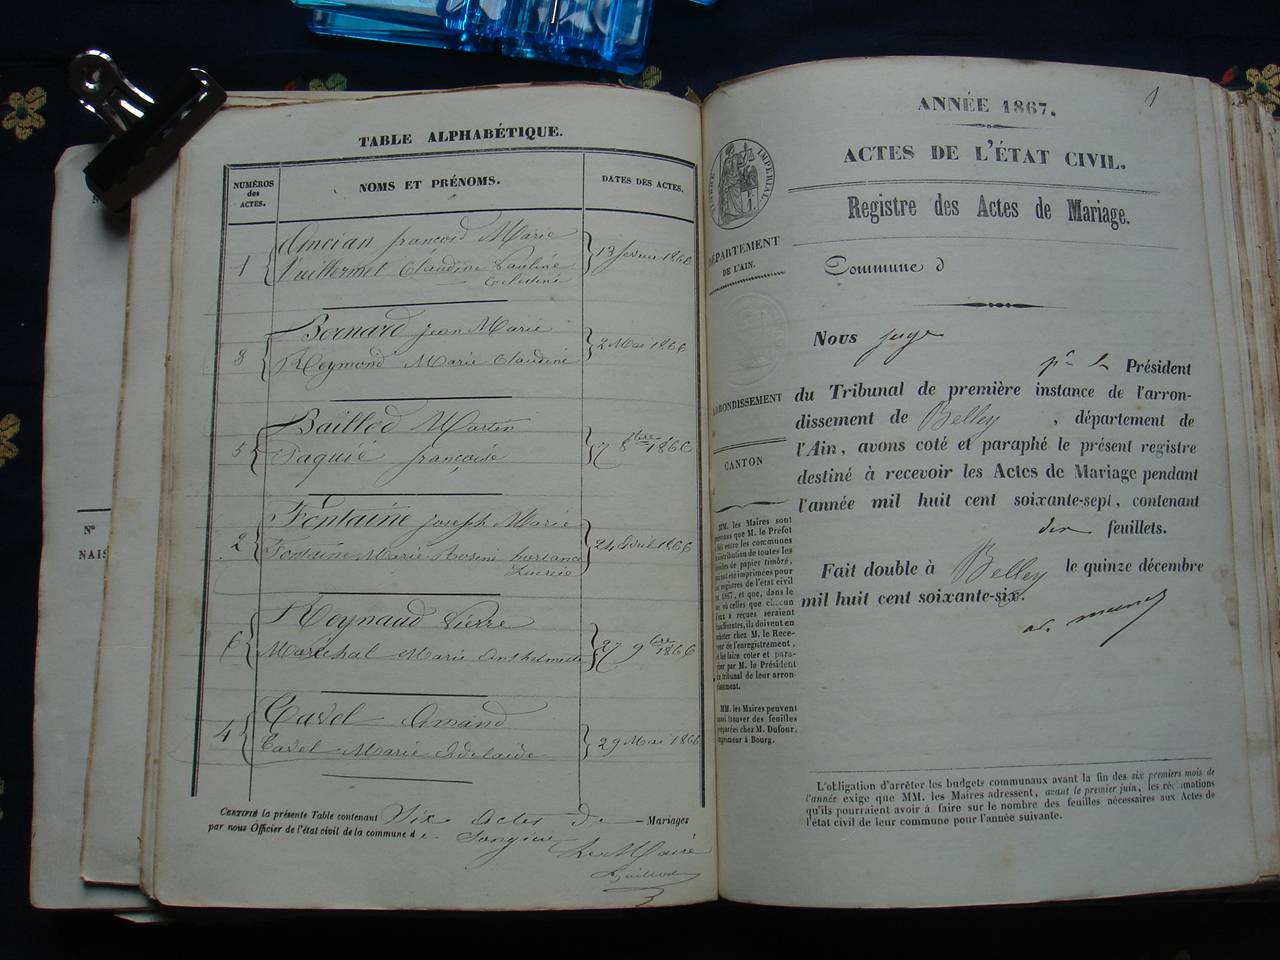 N°
NAIS
TABLE ALPHABÉTIQUE.
NUMÉROS des ACTES.
NOMS ET PRÉNOMS.
DATES DES ACTES.
1
Ancian françois Marie
Vuillermet Claudine Pauline
Celestine
13 fevrier 1866
3
Bernard Jean Marie
Reymond Marie Claudine
2 Mai 1866
5
Baillod Martin
Paquié françoise
17 8bre 1866
2
Fontaine Joseph Marie
Fontaine Marie Rosine hortance
24 Avril 1866
6
Reynaud Pierre
Maréchal Marie Anthelmette
27 9bre 1866
4
Cavel Amand
Cavel Marie Adelaïde
29 Mai 1866
CERTIFIÉ la présente Table contenant Six actes de Mariages
par nous Officier de l'état civil de la commune de Songieu
Le Maire
Baillod
1
ANNÉE 1867.
ACTES DE L'ÉTAT CIVIL.
Registre des Actes de Mariage.
TIMBRE IMPÉRIAL.
DÉPARTEMENT
DE L'AIN.
Commune d
ARRONDISSEMENT
CANTON
Nous juge
pr le Président
du Tribunal de première instance de l'arron-
dissement de Belley, département de
l'Ain, avons coté et paraphé le présent registre
destiné à recevoir les Actes de Mariage pendant
l'année mil huit cent soixante-sept, contenant
feuillets.
Fait double à Belley le quinze décembre
mil huit cent soixante-six.
MM. les Maires sont
prévenus que M. le Préfet
fait entre les communes
distribution de toutes les
feuilles de papier timbré,
qui ont été imprimées pour
les registres de l'état civil
de 1867, et que, dans le
cas où celles que chacun
d'eux a reçues seraient
insuffisantes, ils doivent en
acheter chez M. le Rece-
veur de l'enregistrement,
et les faire coter et para-
pher par M. le Président
du tribunal de leur arron-
dissement.
MM. les Maires peuvent
aussi trouver des feuilles
préparées chez M. Dufour,
imprimeur à Bourg.
L'obligation d'arrêter les budgets communaux avant la fin des six premiers mois de
l'année exige que MM. les Maires adressent, avant le premier juin, les réclamations
qu'ils pourraient avoir à faire sur le nombre des feuilles nécessaires aux Actes de
l'état civil de leur commune pour l'année suivante.